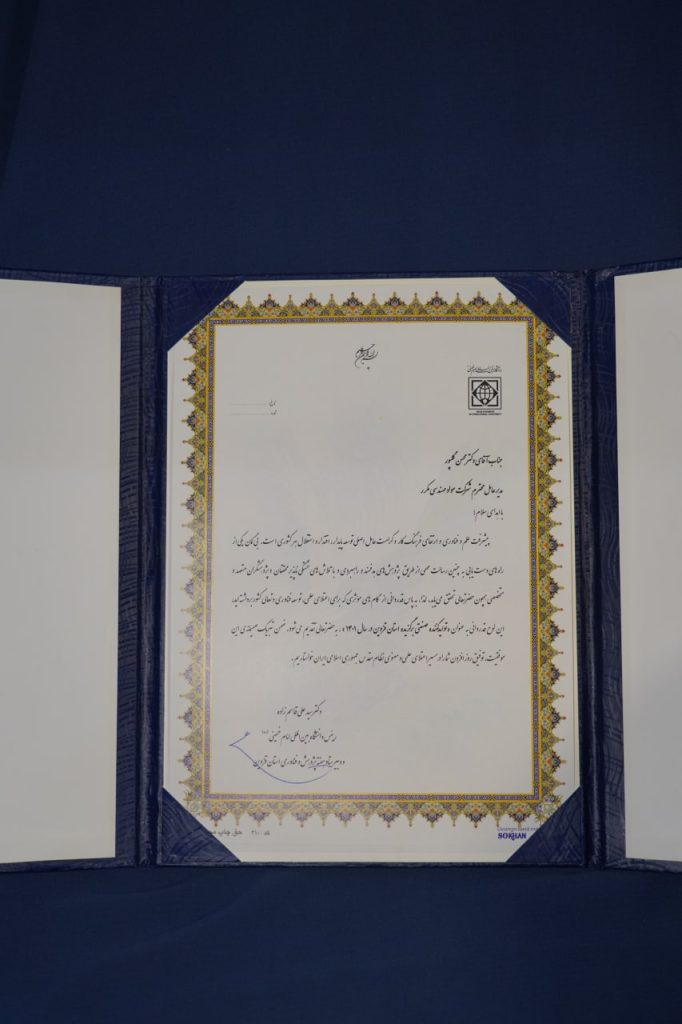 تاریخ
شماره
IMAM KHOMEINI
INTERNATIONAL UNIVERSITY
جناب آقای دکتر محسن گلپور
مدیرعامل محترم شرکت مولد مهندسی مکرر
با اهدای سلام؛
پیشرفت علم و فناوری و ارتقای فرهنگ کار و کرامت عامل اصلی توسعه پایدار، اقتدار و استقلال هر کشوری است. بی‌گمان یکی از
راه‌های دست‌یابی به چنین رسالت مهمی از طریق پژوهش‌های هدفمند و راهبردی و با تلاش‌های خستگی‌ناپذیر محققان و پژوهشگران متعهد و
متخصصی همچون حضرتعالی تحقق می‌یابد. لذا، به پاس قدردانی از گام‌های موثری که برای اعتلای علمی، توسعه فناوری و تعالی کشور برداشته‌اید،
این لوح قدردانی به عنوان «تولیدکننده صنعتی برگزیده استان قزوین در سال ۱۴۰۱»، به حضرتعالی تقدیم می‌شود. ضمن تبریک صمیمانه‌ی این
موفقیت، توفیق روزافزون شما را در مسیر اعتلای علمی و معنوی نظام مقدس جمهوری اسلامی ایران خواستاریم.
دکتر سید علی قاسم زاده
رئیس دانشگاه بین المللی امام خمینی (ره)
و دبیر ستاد هفته پژوهش و فناوری استان قزوین
کد ۲۱۰۰ حق چاپ
SOKHAN